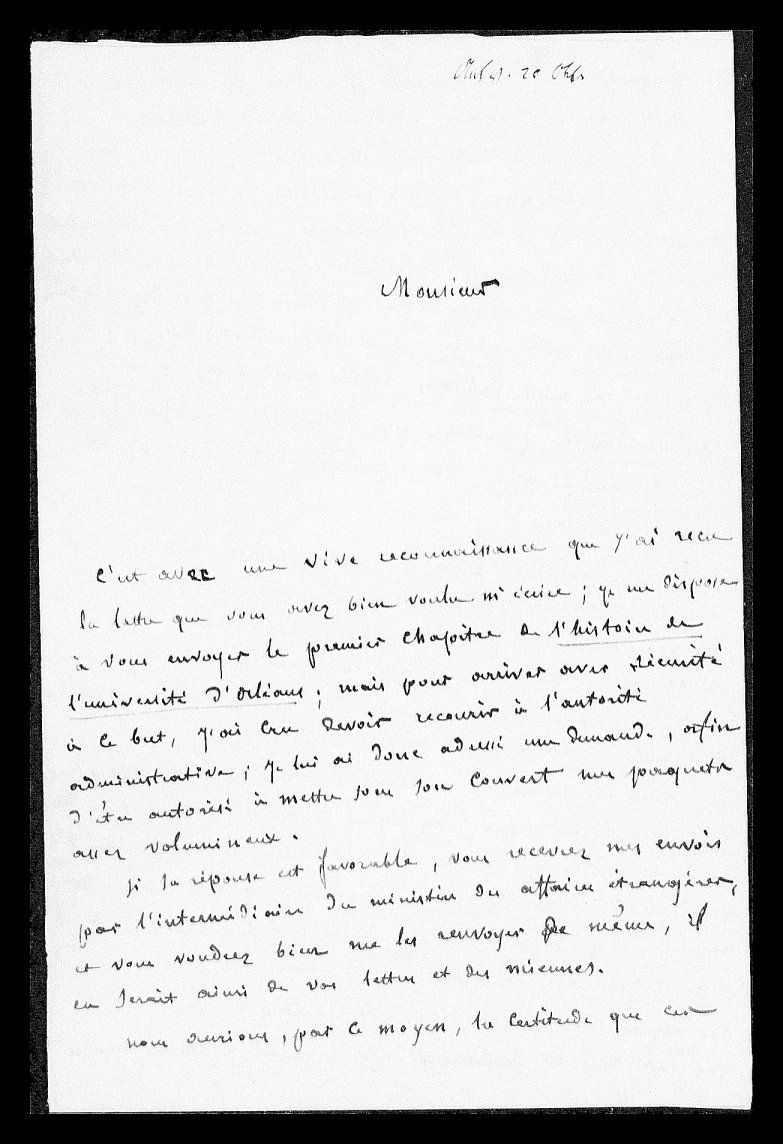 20 8bre
Monsieur
C'est avec une vive reconnaissance que j'ai recu
la lettre que vous avez bien voulu m'écrire ; je me dispose
à vous envoyer le premier chapitre de l'histoire de
l'université d'Orléans ; mais pour arriver avec sécurité
à ce but, j'ai cru devoir recourir à l'autorité
administrative ; je lui ai donc adressé une demande, afin
d'être autorisé à mettre sous son couvert mes paquets
assez volumineux.
Si sa réponse est favorable, vous recevrez mes envois
par l'intermédiaire du ministère des affaires étrangères,
et vous voudrez bien me les renvoyer de même, il
en serait ainsi de vos lettres et des miennes.
nous aurions, par ce moyen, la certitude que ces